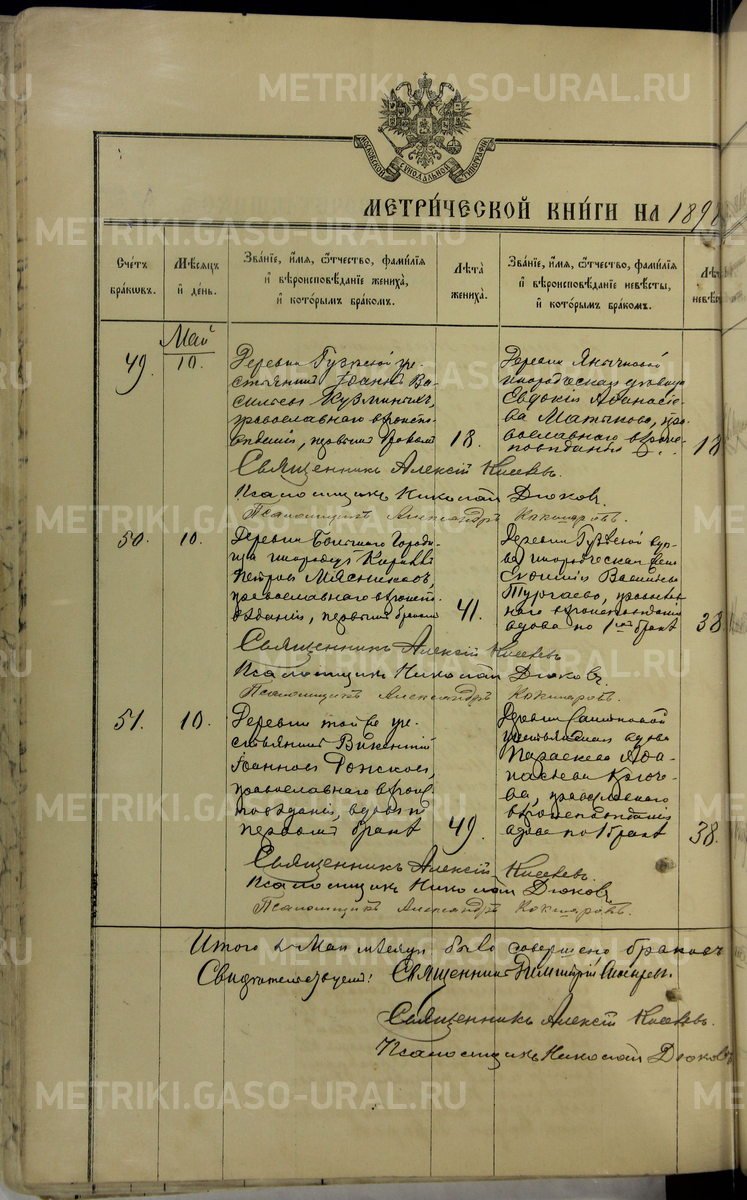 МОСКОВСКОЙ СУНОДАЛЬНОЙ ТИПОГРАФІИ
МЕТРИ́ЧЕСКОЙ КНИ́ГИ НА 189
Счéтъ бра́кѡвъ.
Мѣ́сяцъ и҆ де́нь.
Зва́нїе, и҆́мя, ѻ҆́тчество, фами́лїя и҆ вѣроисповѣ́данїе жениха̀, и҆ кото́рымъ бра́комъ.
Лѣ́та жениха̀.
Зва́нїе, и҆́мя, ѻ҆́тчество, фами́лїя и҆ вѣроисповѣ́данїе невѣ́сты, и҆ кото́рымъ бра́комъ.
Май
49.
10.
Деревни
стьянинъ Іоаннъ Ва-
сильевъ
православнаго вѣроиспо-
вѣданія, первымъ бракомъ
18.
Деревни
инородческая дѣвица
Евдокія Аѳанасіе-
ва
вославнаго вѣроис-
повѣданія
18
Священникъ Алексій Киселевъ.
Псаломщикъ Николай Дюковъ.
Псаломщикъ Александръ Кокшаровъ.
50.
10.
Деревни
Петровъ Мясниковъ,
православнаго вѣроиспо-
вѣданія, первымъ бракомъ
41.
Деревни
ва инородческая
Васильева
православ-
наго вѣроисповѣданія
вдова по 1му браку
38.
Священникъ Алексій Киселевъ.
Псаломщикъ Николай Дюковъ.
Псаломщикъ Александръ Кокшаровъ.
51.
10.
Деревни той же кре-
стьянинъ Викентій
Іоанновъ
православнаго вѣроис-
повѣданія, вдовъ по
первому браку
49.
Деревни
крестьянская вдова
Параскева Аѳа-
насьева Ключе-
ва, православнаго
вѣроисповѣданія
вдова по 1 браку
38.
Священникъ Алексій Киселевъ.
Псаломщикъ Николай Дюковъ.
Псаломщикъ Александръ Кокшаровъ.
Итого въ Маѣ мѣсяцѣ было совершено браковъ
Свидѣтельствуетъ: Священникъ Димитрій
Священникъ Алексій Киселевъ.
Псаломщикъ Николай Дюковъ
METRIKI.GASO-URAL.RU